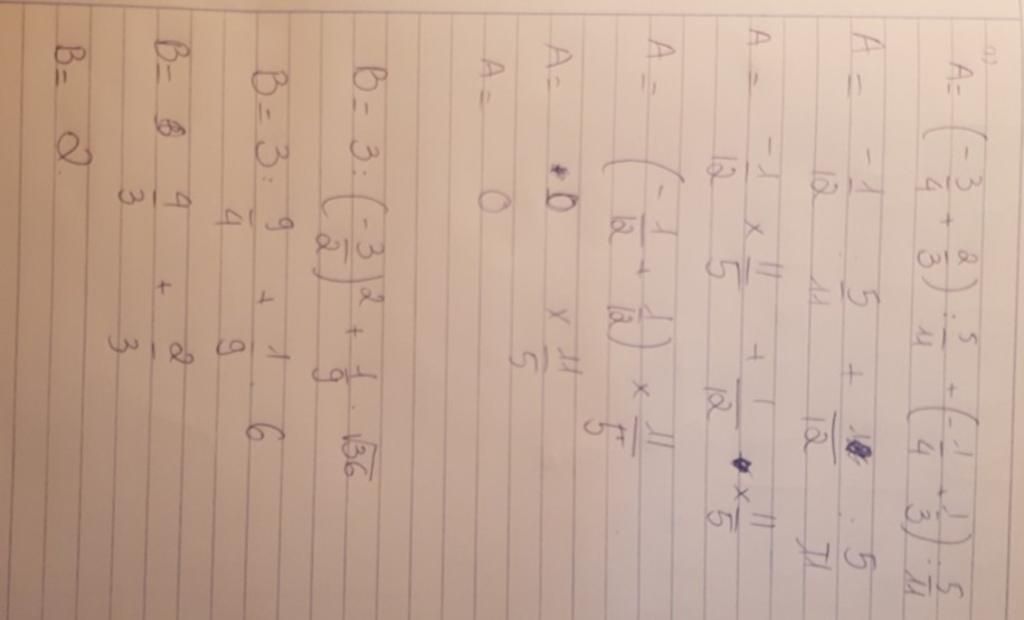 a)
A = (-3/4 + 2/3) : 5/11 + (-1/4 + 1/3) : 5/11
A = -1/12 : 5/11 + 1/12 : 5/11
A = -1/12 × 11/5 + 1/12 × 11/5
A = (-1/12 + 1/12) × 11/5
A = 0 × 11/5
A = 0
B = 3 : (-3/2)² + 1/9 . √36
B = 3 : 9/4 + 1/9 . 6
B = 4/3 + 2/3
B = 2